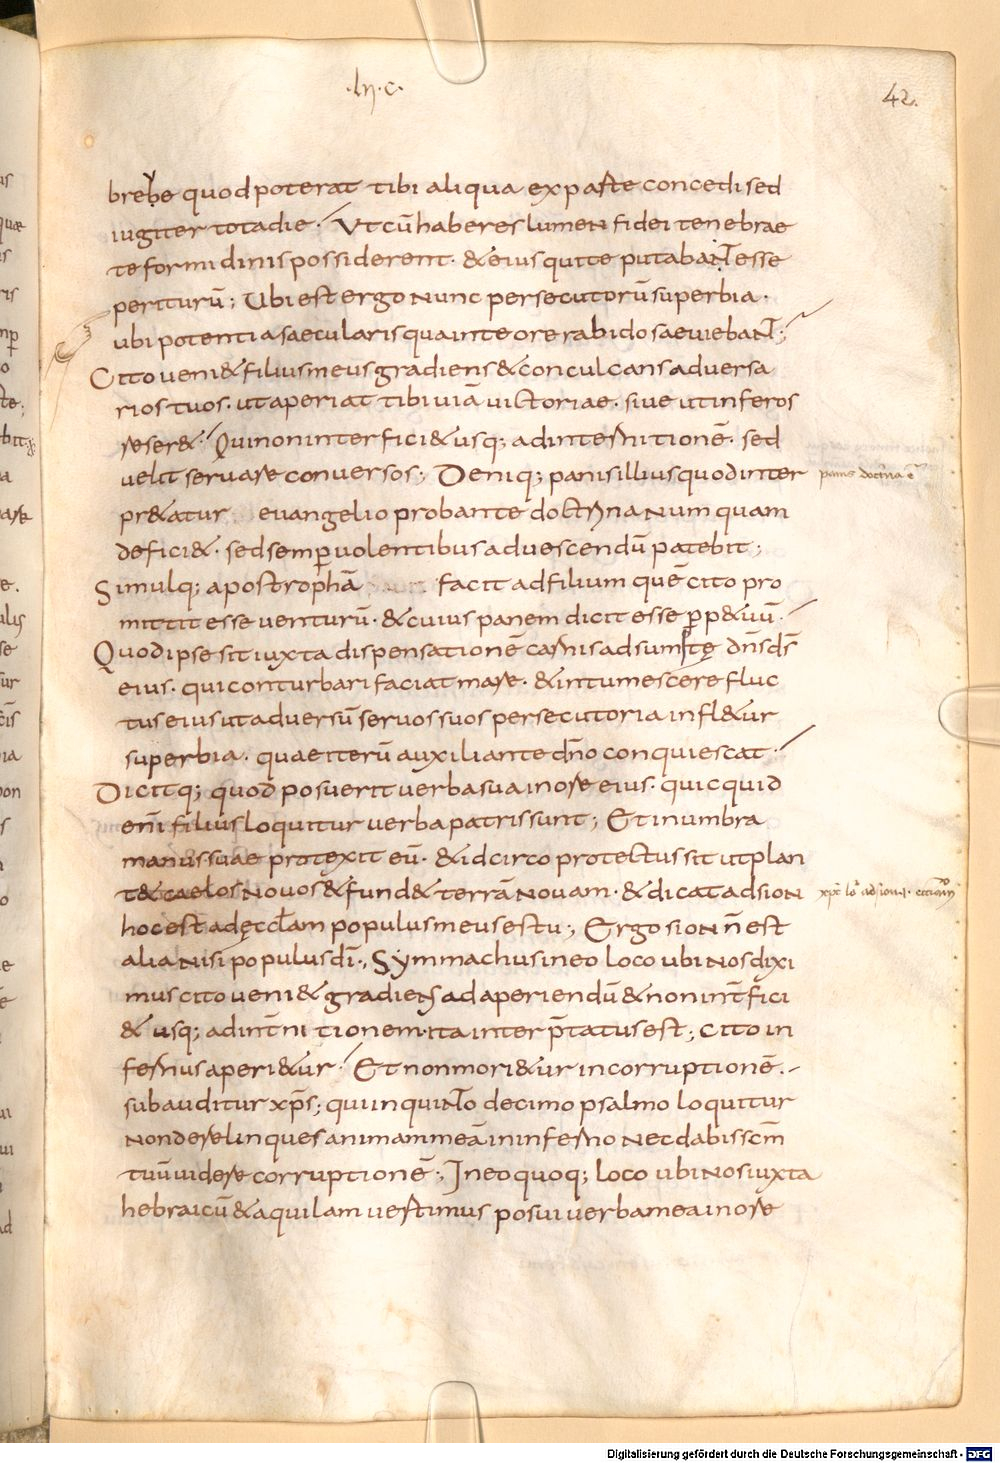 ·lıı·c·
42.
breue quod poterat tibi aliqua ex parte concedi sed
iugiter tota die. Ut cū haberes lumen fidei tenebrae
te formidinis possiderent. & eius qui te putabant esse
periturū; Ubi est ergo nunc persecutorū superbia.
ubi potentia saecularis quae in te ore rabido saeuiebant;
Cito ueni& filius meus gradiens & conculcans aduersa
rios tuos. ut aperiat tibi uiā uictoriae. siue ut inferos
reser&. Qui non interfici& usq; ad internitionē. sed
uelit seruare conuersos; Deniq; panis illius quod inter
panis doctrina ē
pr&atur euangelio probante doctrina numquam
defici&. sed semp uolentibus ad uescendū patebit;
Simulq; apostrophā facit ad filium quē cito pro
mittit esse uenturū. & cuius panem dicit esse pp&uū.
Quod ipse sit iuxta dispensationē carnis adsumptę dn̄s ds̄
eius. qui conturbari faciat mare. & intumescere fluc
tus eius ut aduersū seruos suos persecutoria infl&ur
superbia. quae iterū auxiliante dn̄o conquiescat.
Dicitq; quod posuerit uerba sua in ore eius. quicquid
eni filius loquitur uerba patris sunt; Et in umbra
manus suae protexit eū. & idcirco protectus sit ut plan
t& caelos nouos & fund& terrā nouam. & dicat ad sion
hoc est ad ęcclam populus meus es tu; Ergo sion n̄ est
alia nisi populus dī; Symmachus in eo loco ubi nos dixi
mus cito ueni& gradiens ad aperiendū & non int̄fici
& usq; ad int̄nitionem. ita interp̄tatus est; Cito in
fernus aperi&ur. Et non mori&ur in corruptionē.
subauditur xp̄s; qui in quinto decimo psalmo loquitur
non derelinques animam meā in inferno nec dabis scm̄
tuū uidere corruptionē; In eo quoq; loco ubi nos iuxta
hebraicū & aquilam uertimus posui uerba mea in ore
Digitalisierung gefördert durch die Deutsche Forschungsgemeinschaft - DFG